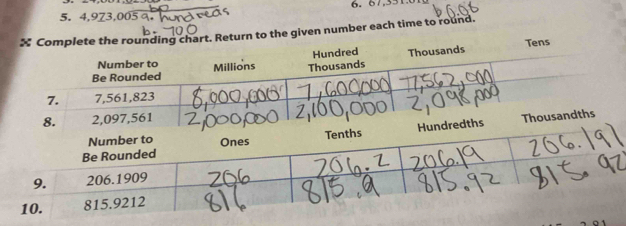 5. 4,973,005 a. hundreds 6.
b. 700
Complete the rounding chart. Return to the given number each time to round.
Number to Be Rounded Millions Hundred Thousands Thousands Tens
7. 7,561,823 8,000,000 7,600,000 7,562,000
8. 2,097,561 2,000,000 2,100,000 2,098,000
Number to Be Rounded Ones Tenths Hundredths Thousandths
9. 206.1909 206 206.2 206.19 206.191
10. 815.9212 816 815.9 815.92 815.92